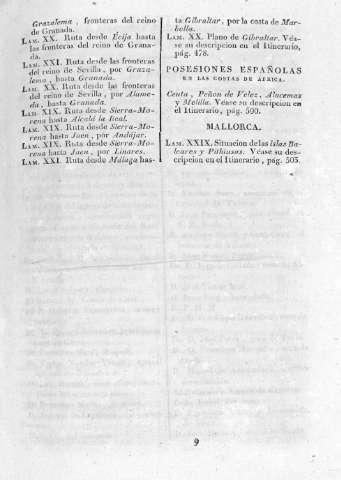 Grazalema, fronteras del reino
de Granada.
LAM. XX. Ruta desde Ecija hasta
las fronteras del reino de Grana-
da.
LAM. XXI. Ruta desde las fronteras
del reino de Sevilla, por Graza-
lema, hasta Granada.
LAM. XX. Ruta desde las fronteras
del reino de Sevilla, por Alame-
da, hasta Granada.
LAM. XIX. Ruta desde Sierra-Mo-
rena hasta Alcalá la Real.
LAM. XIX. Ruta desde Sierra-Mo-
rena hasta Jaen, por Andújar.
LAM. XIX. Ruta desde Sierra-Mo-
rena hasta Jaen, por Linares.
LAM. XXI. Ruta desde Málaga has-
ta Gibraltar, por la costa de Mar-
bella.
LAM. XX. Plano de Gibraltar. Véa-
se su descripcion en el Itinerario,
pág. 478.
POSESIONES ESPAÑOLAS
EN LAS COSTAS DE ÁFRICA.
Ceuta, Peñon de Velez, Alucemas
y Melilla. Véase su descripcion en
el Itinerario, pág. 500.
MALLORCA.
LAM. XXIX. Situacion de las Islas Ba-
leares y Pithiusas. Véase su des-
cripcion en el Itinerario, pág. 503.
9